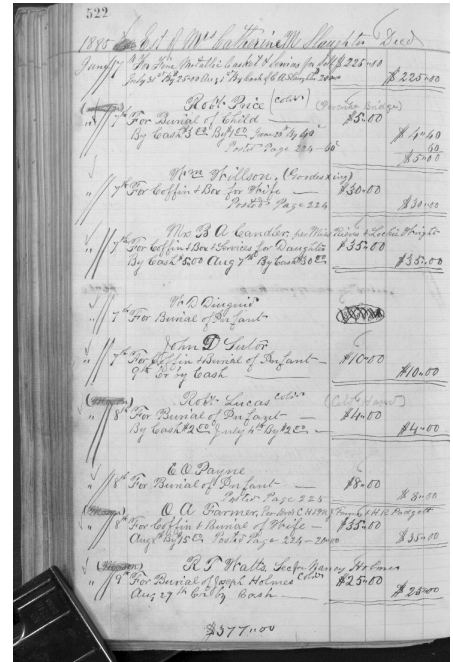 522
1885 Est of Mrs Catherine M Slaughter Decd
June 7th For Fine Metallic Casket & Services for Self $225.00
July 31st By $25.00 Aug 1st By Cash of C A Slaughter 200.00 $225.00
Robt Price (Cold)
" 7th For Burial of Child — $5.00
By Cash $3.00 By $1.00 June 20th By 40 $4.40
Posted Page 224 - 60 60
$5.00
Wm Willson.
" 7th For Coffin & Box for Wife — $30.00
Posted Page 224 $30.00
Mrs B A Candler,
" 7th For Coffin & Box & Services for Daughter $35.00
By Cash $5.00 Aug 7th By Cash $30.00 $35.00
W D Diuguid
" 7th For Burial of Infant
John D Sutor
" 7th For Coffin & Burial of Infant — $10.00
9th Cr by Cash — $10.00
Robt Lucas Cold
" 8th For Burial of Infant — $4.00
By Cash $2.00 July 4th By $2.00 — $4.00
E O Payne
" 8th For Burial of Infant — $8.00
Posted Page 225 $8.00
O A Farmer,
" 8th For Coffin & Burial of Wife — $35.00
Posted Page 224 - 20.00 $35.00
R T Watts Sec for Nancy Holmes
" 9th For Burial of Joseph Holmes Cold $25.00
Aug 27th Cr by Cash — $25.00
$377.00